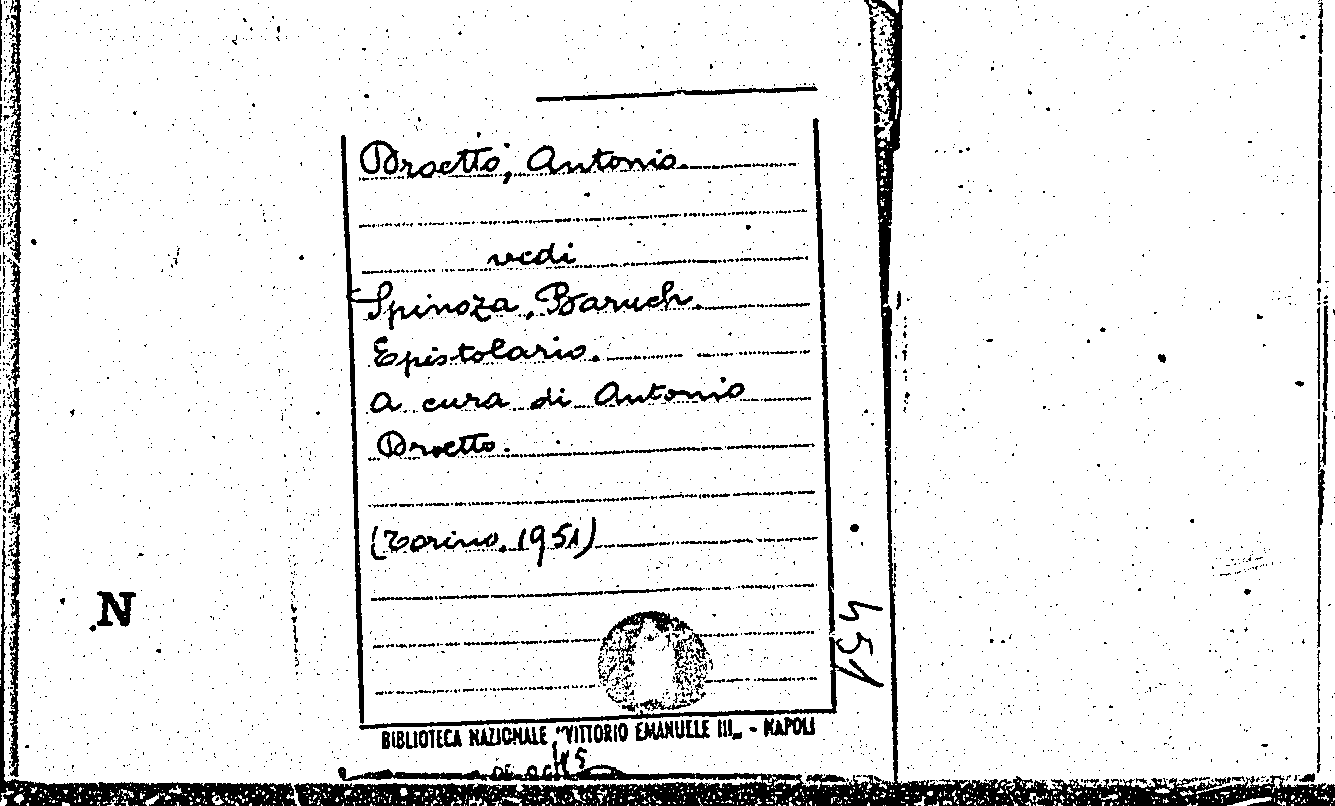 Droetto, Antonio.
vedi
Spinoza, Baruch.
Epistolario.
a cura di Antonio
Droetto.
(Torino, 1951)
N
451
BIBLIOTECA NAZIONALE "VITTORIO EMANUELE III„ - NAPOLI